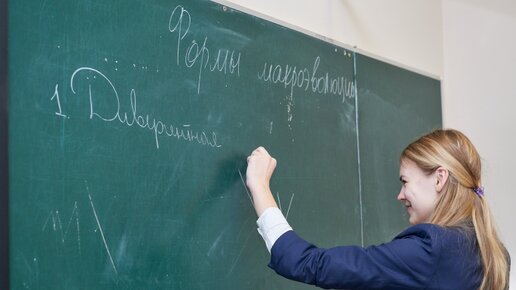 Формы макроэволюции
1. Дивергентная